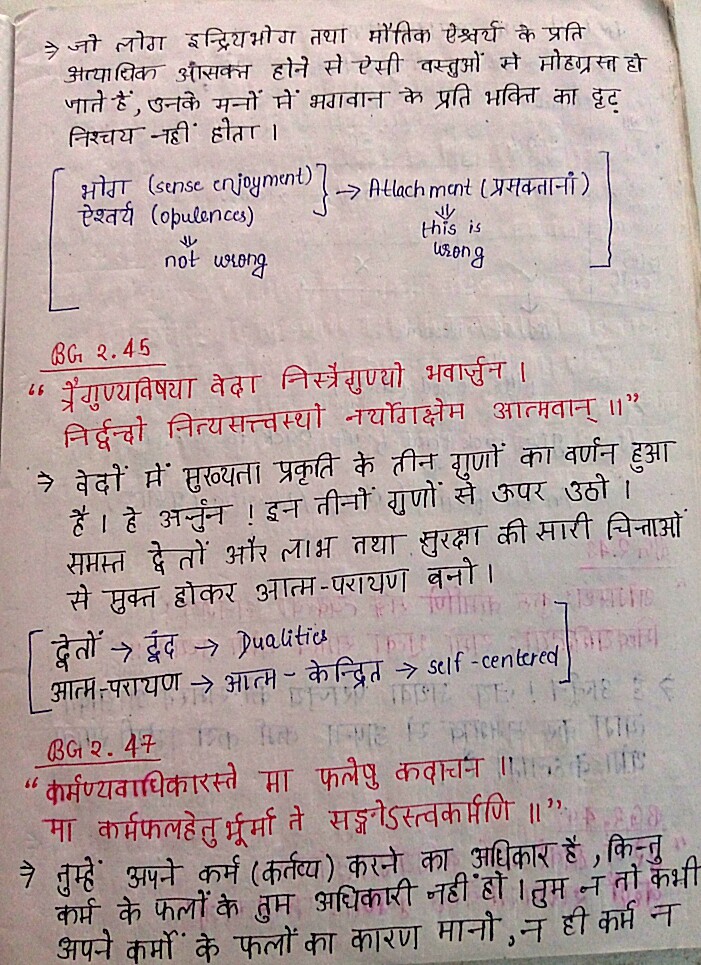 ⇒ जो लोग इन्द्रियभोग तथा भौतिक ऐश्वर्य के प्रति
अत्याधिक आसक्त होने से ऐसी वस्तुओं से मोहग्रस्त हो
जाते हैं, उनके मनों में भगवान के प्रति भक्ति का दृढ़
निश्चय नहीं होता ।
भोग (sense enjoyment) } → Attachment (प्रसक्तानां)
ऐश्वर्य (opulences)
⇓ not wrong
⇓ this is wrong
BG 2.45
“ त्रैगुण्यविषया वेदा निस्त्रैगुण्यो भवार्जुन ।
निर्द्वन्द्वो नित्यसत्त्वस्थो नर्योगक्षेम आत्मवान् ॥”
⇒ वेदों में मुख्यता प्रकृति के तीन गुणों का वर्णन हुआ
है । हे अर्जुन ! इन तीनों गुणों से ऊपर उठो ।
समस्त द्वेतों और लाभ तथा सुरक्षा की सारी चिन्ताओं
से मुक्त होकर आत्म-परायण बनो ।
द्वेतों → द्वंद → Dualities
आत्म-परायण → आत्म - केन्द्रित → self-centered
BG 2.47
“ कर्मण्यवाधिकारस्ते मा फलेषु कवाचन ॥
मा कर्मफलहेतुर्भूर्मा ते सङ्गोऽस्त्वकर्मणि ॥”
⇒ तुम्हें अपने कर्म (कर्तव्य) करने का अधिकार है, किन्तु
कर्म के फलों के तुम अधिकारी नहीं हो । तुम न तो कभी
अपने कर्मों के फलों का कारण मानो, न ही कर्म न